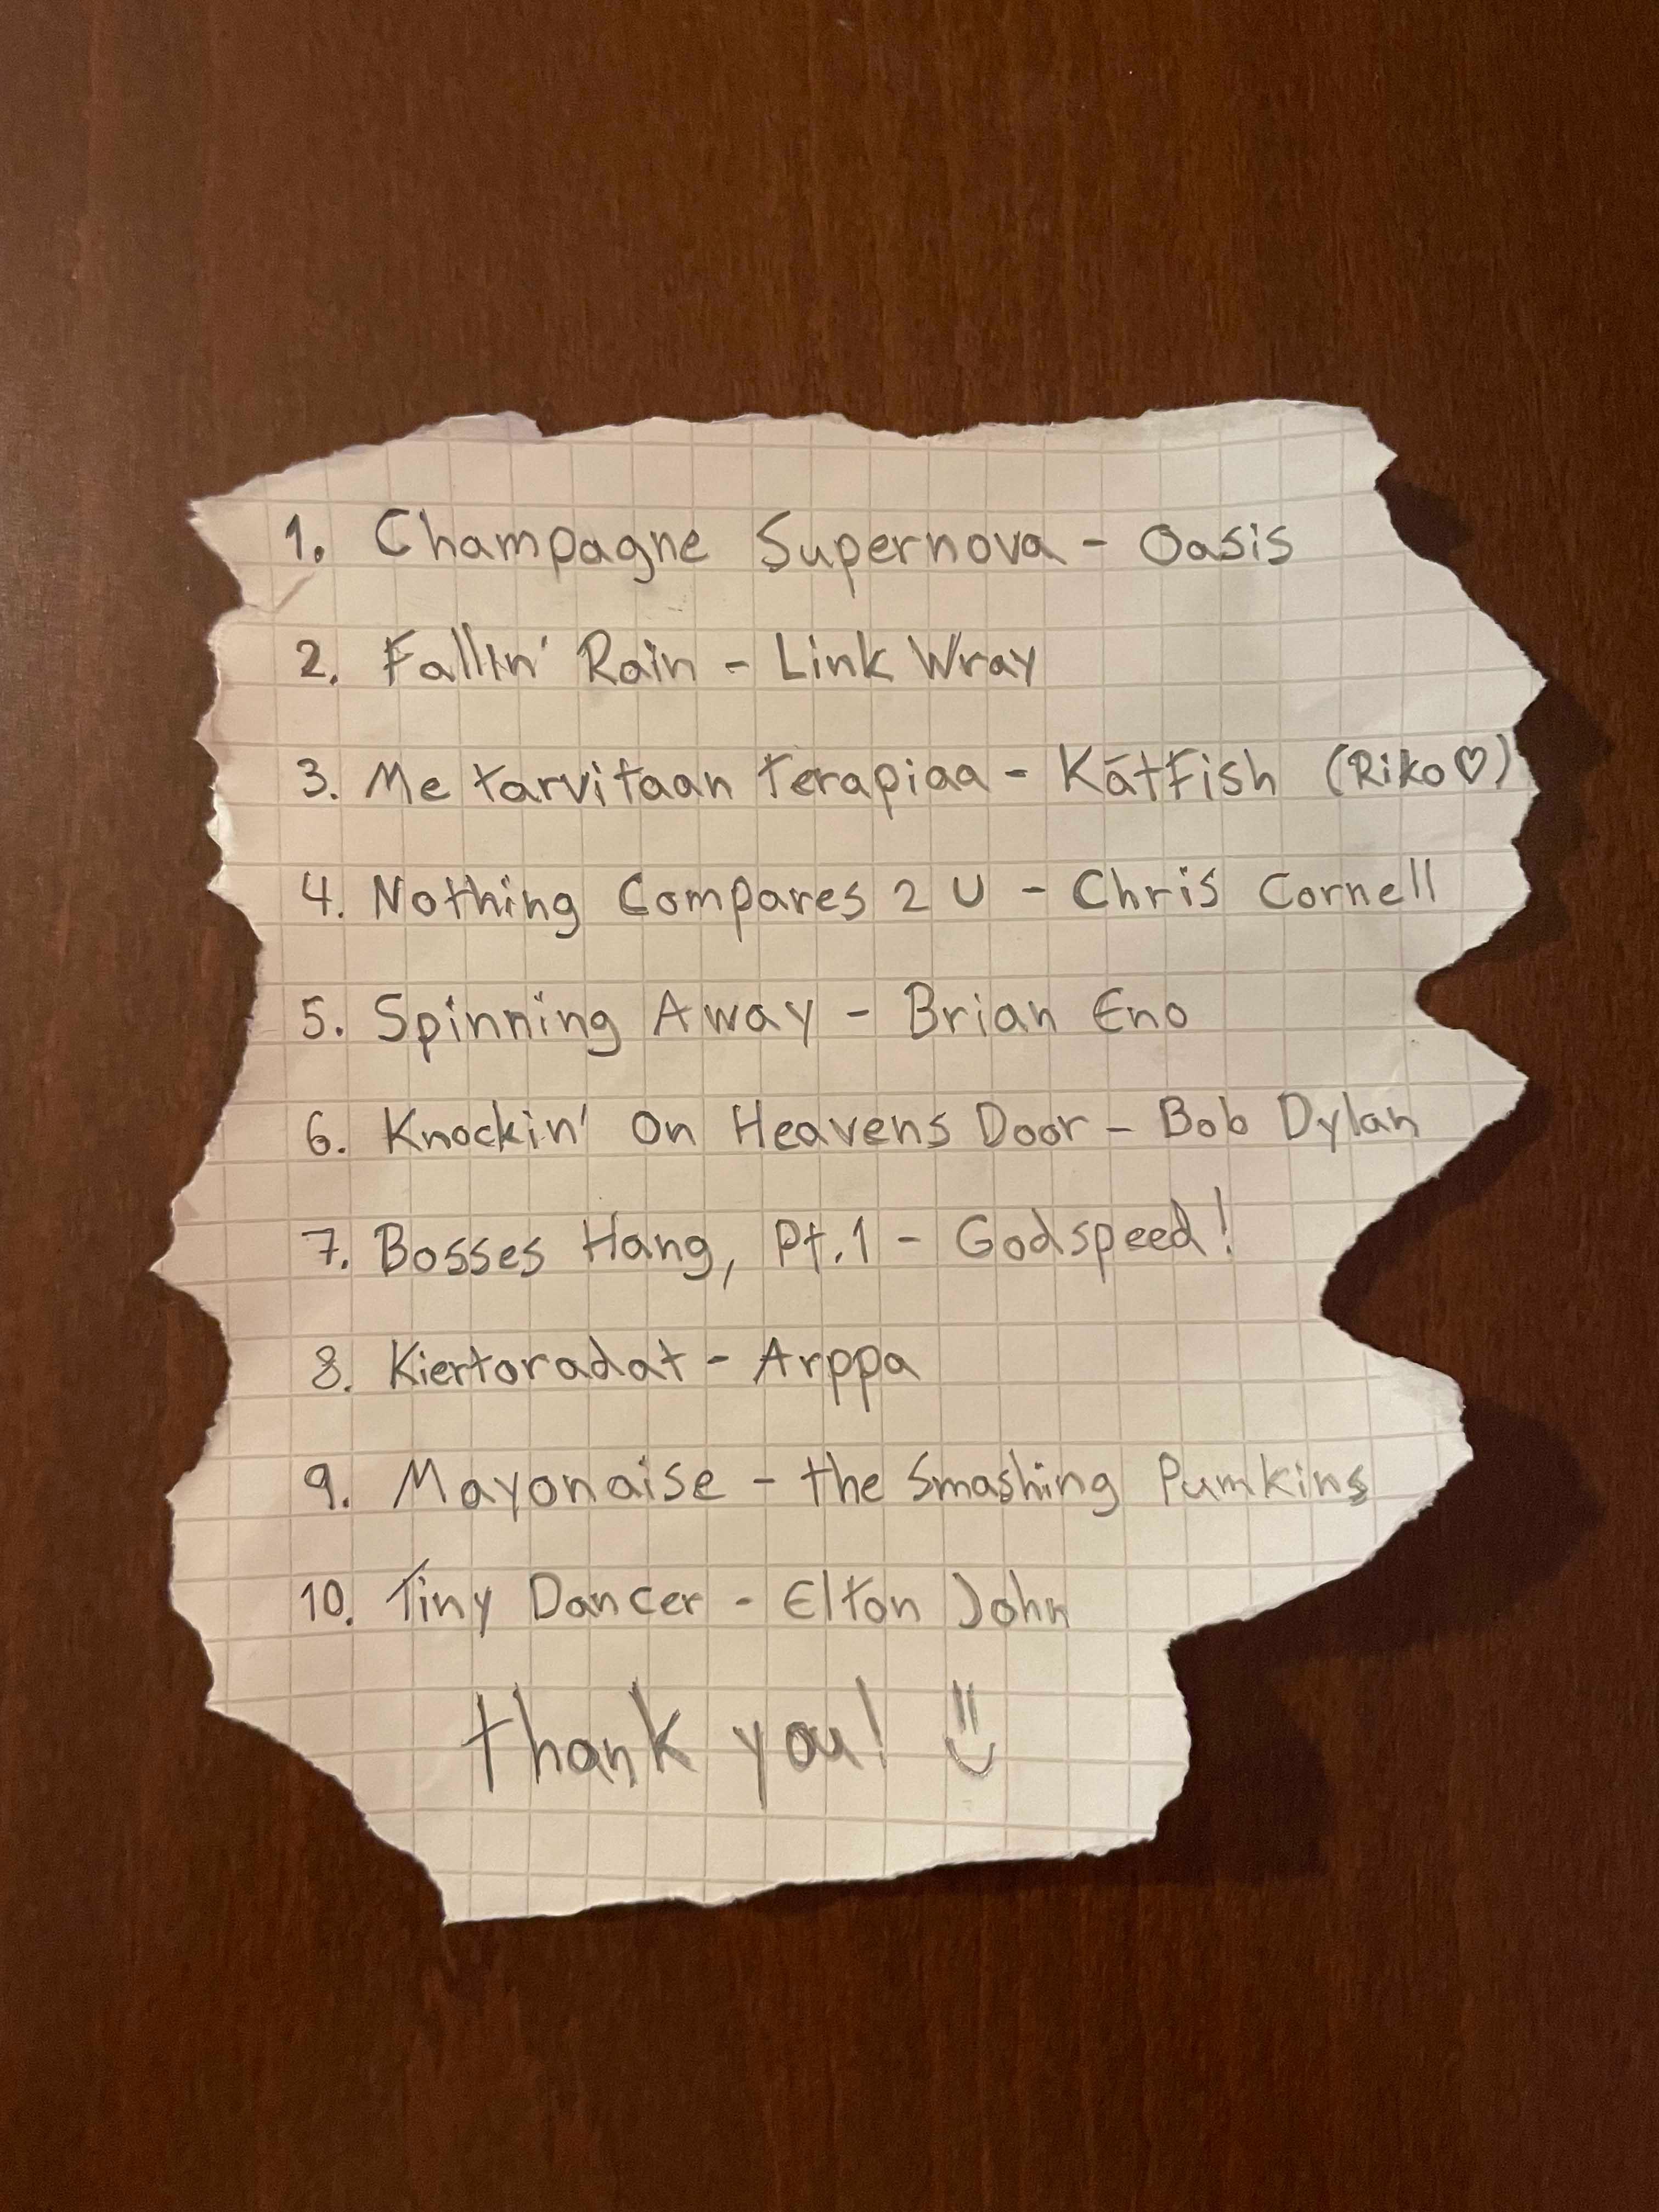 1. Champagne Supernova - Oasis
2. Fallin' Rain - Link Wray
3. Me tarvitaan terapiaa - KátFish (Riko♡)
4. Nothing Compares 2 U - Chris Cornell
5. Spinning Away - Brian Eno
6. Knockin' On Heavens Door - Bob Dylan
7. Bosses Hang, Pt.1 - Godspeed!
8. Kiertoradat - Arppa
9. Mayonaise - the Smashing Pumkins
10. Tiny Dancer - Elton John
thank you! =)